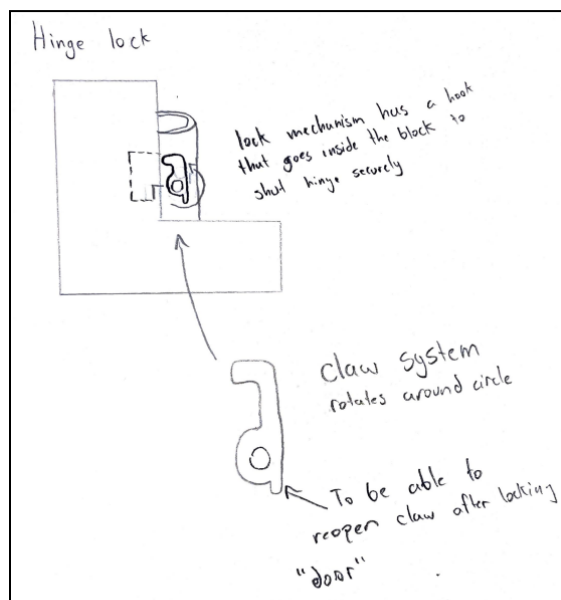 Hinge lock
lock mechanism has a hook
that goes inside the block to
shut hinge securely
claw system
rotates around circle
To be able to
reopen claw after locking
"door"